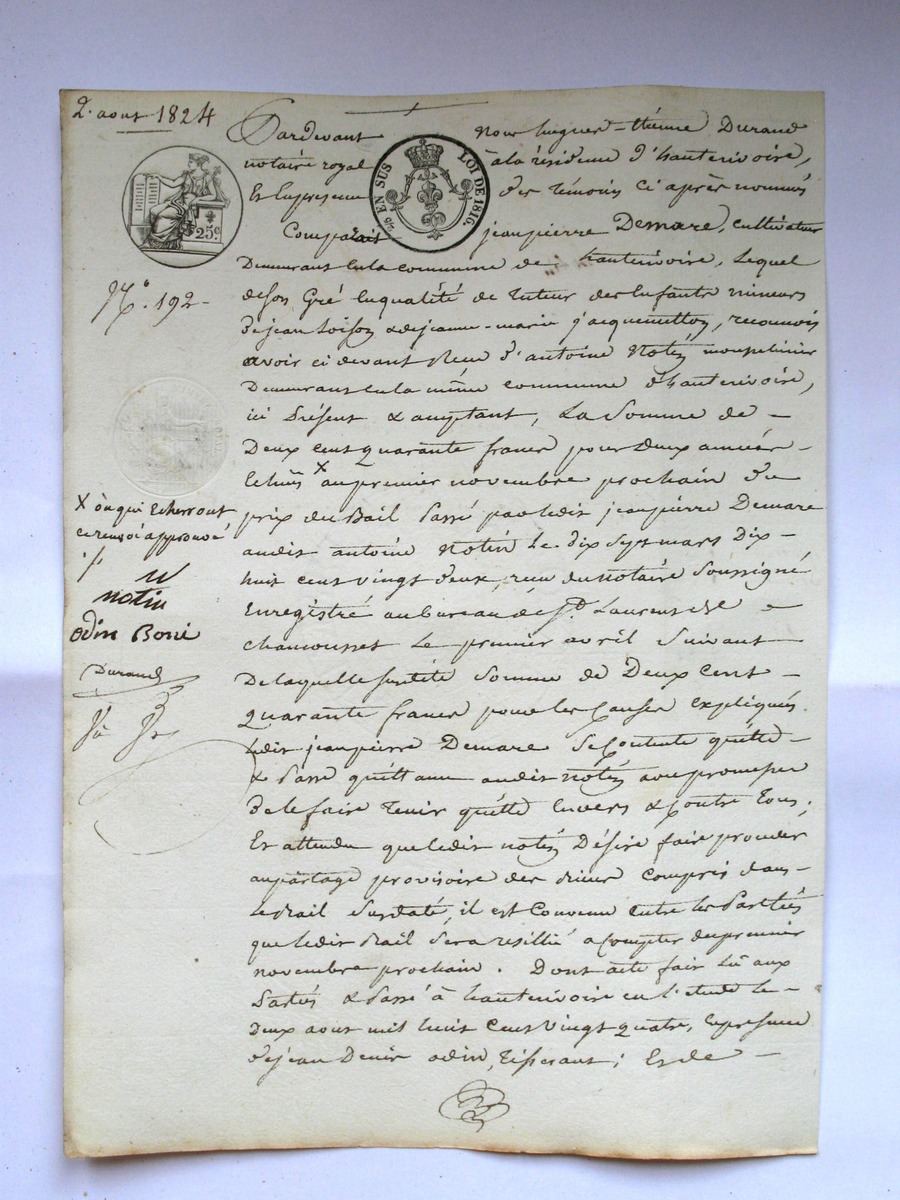 2. aout 1824
Pardevant Nous hugues-étienne Durand
notaire royal à la résidence d'hauterivoire,
Et en presence des témoins ci après nommés
Comparait jean pierre Demare, cultivateur
Demeurant en la commune de hauterivoire, Lequel
de son Gré en qualité de tuteur des enfants mineurs
de jean Loison & de jeanne-marie jacquemetton, reconnois
avoir ci devant Reçu d'antoine Notin
Demeurant en la même commune d'hauterivoire,
ici présent & acceptant, La Somme de -
Deux cent quarante francs pour deux années -
Echûes X au premier novembre prochain du
prix du Bail Passé par ledit jean pierre Demare
audit antoine Notin Le dix sept mars dix -
huit cent vingt deux, reçu du notaire Soussigné
Enregistré au bureau de St. Laurent de
chamousset Le premier avril Suivant
De laquelle susdite Somme de Deux cent -
quarante francs pour les Causes Expliqués.
Ledit jean pierre Demare Se Contente quitte -
& Passe quittance audit notin avec promesse
de le faire tenir quitte Envers & Contre tous.
Et attendu que ledit notin Désire faire proceder
au partage provisoire des biens Compris dans
le Bail Susdaté, il est Convenu Entre les Parties
que ledit Bail Sera résillié a Compter du premier
novembre prochain. Dont acte fait Lû aux
Parties & Passé à hauterivoire en l'etude le -
Deux aout mil huit Cent vingt quatre, En presence
de jean Denis odin, tisserant; Et de -
25c.
EN SUS
LOI DE 1816.
No. 192-
X ou qui Echerront
ce renvoi approuvé
notin
odin Boni
Durand